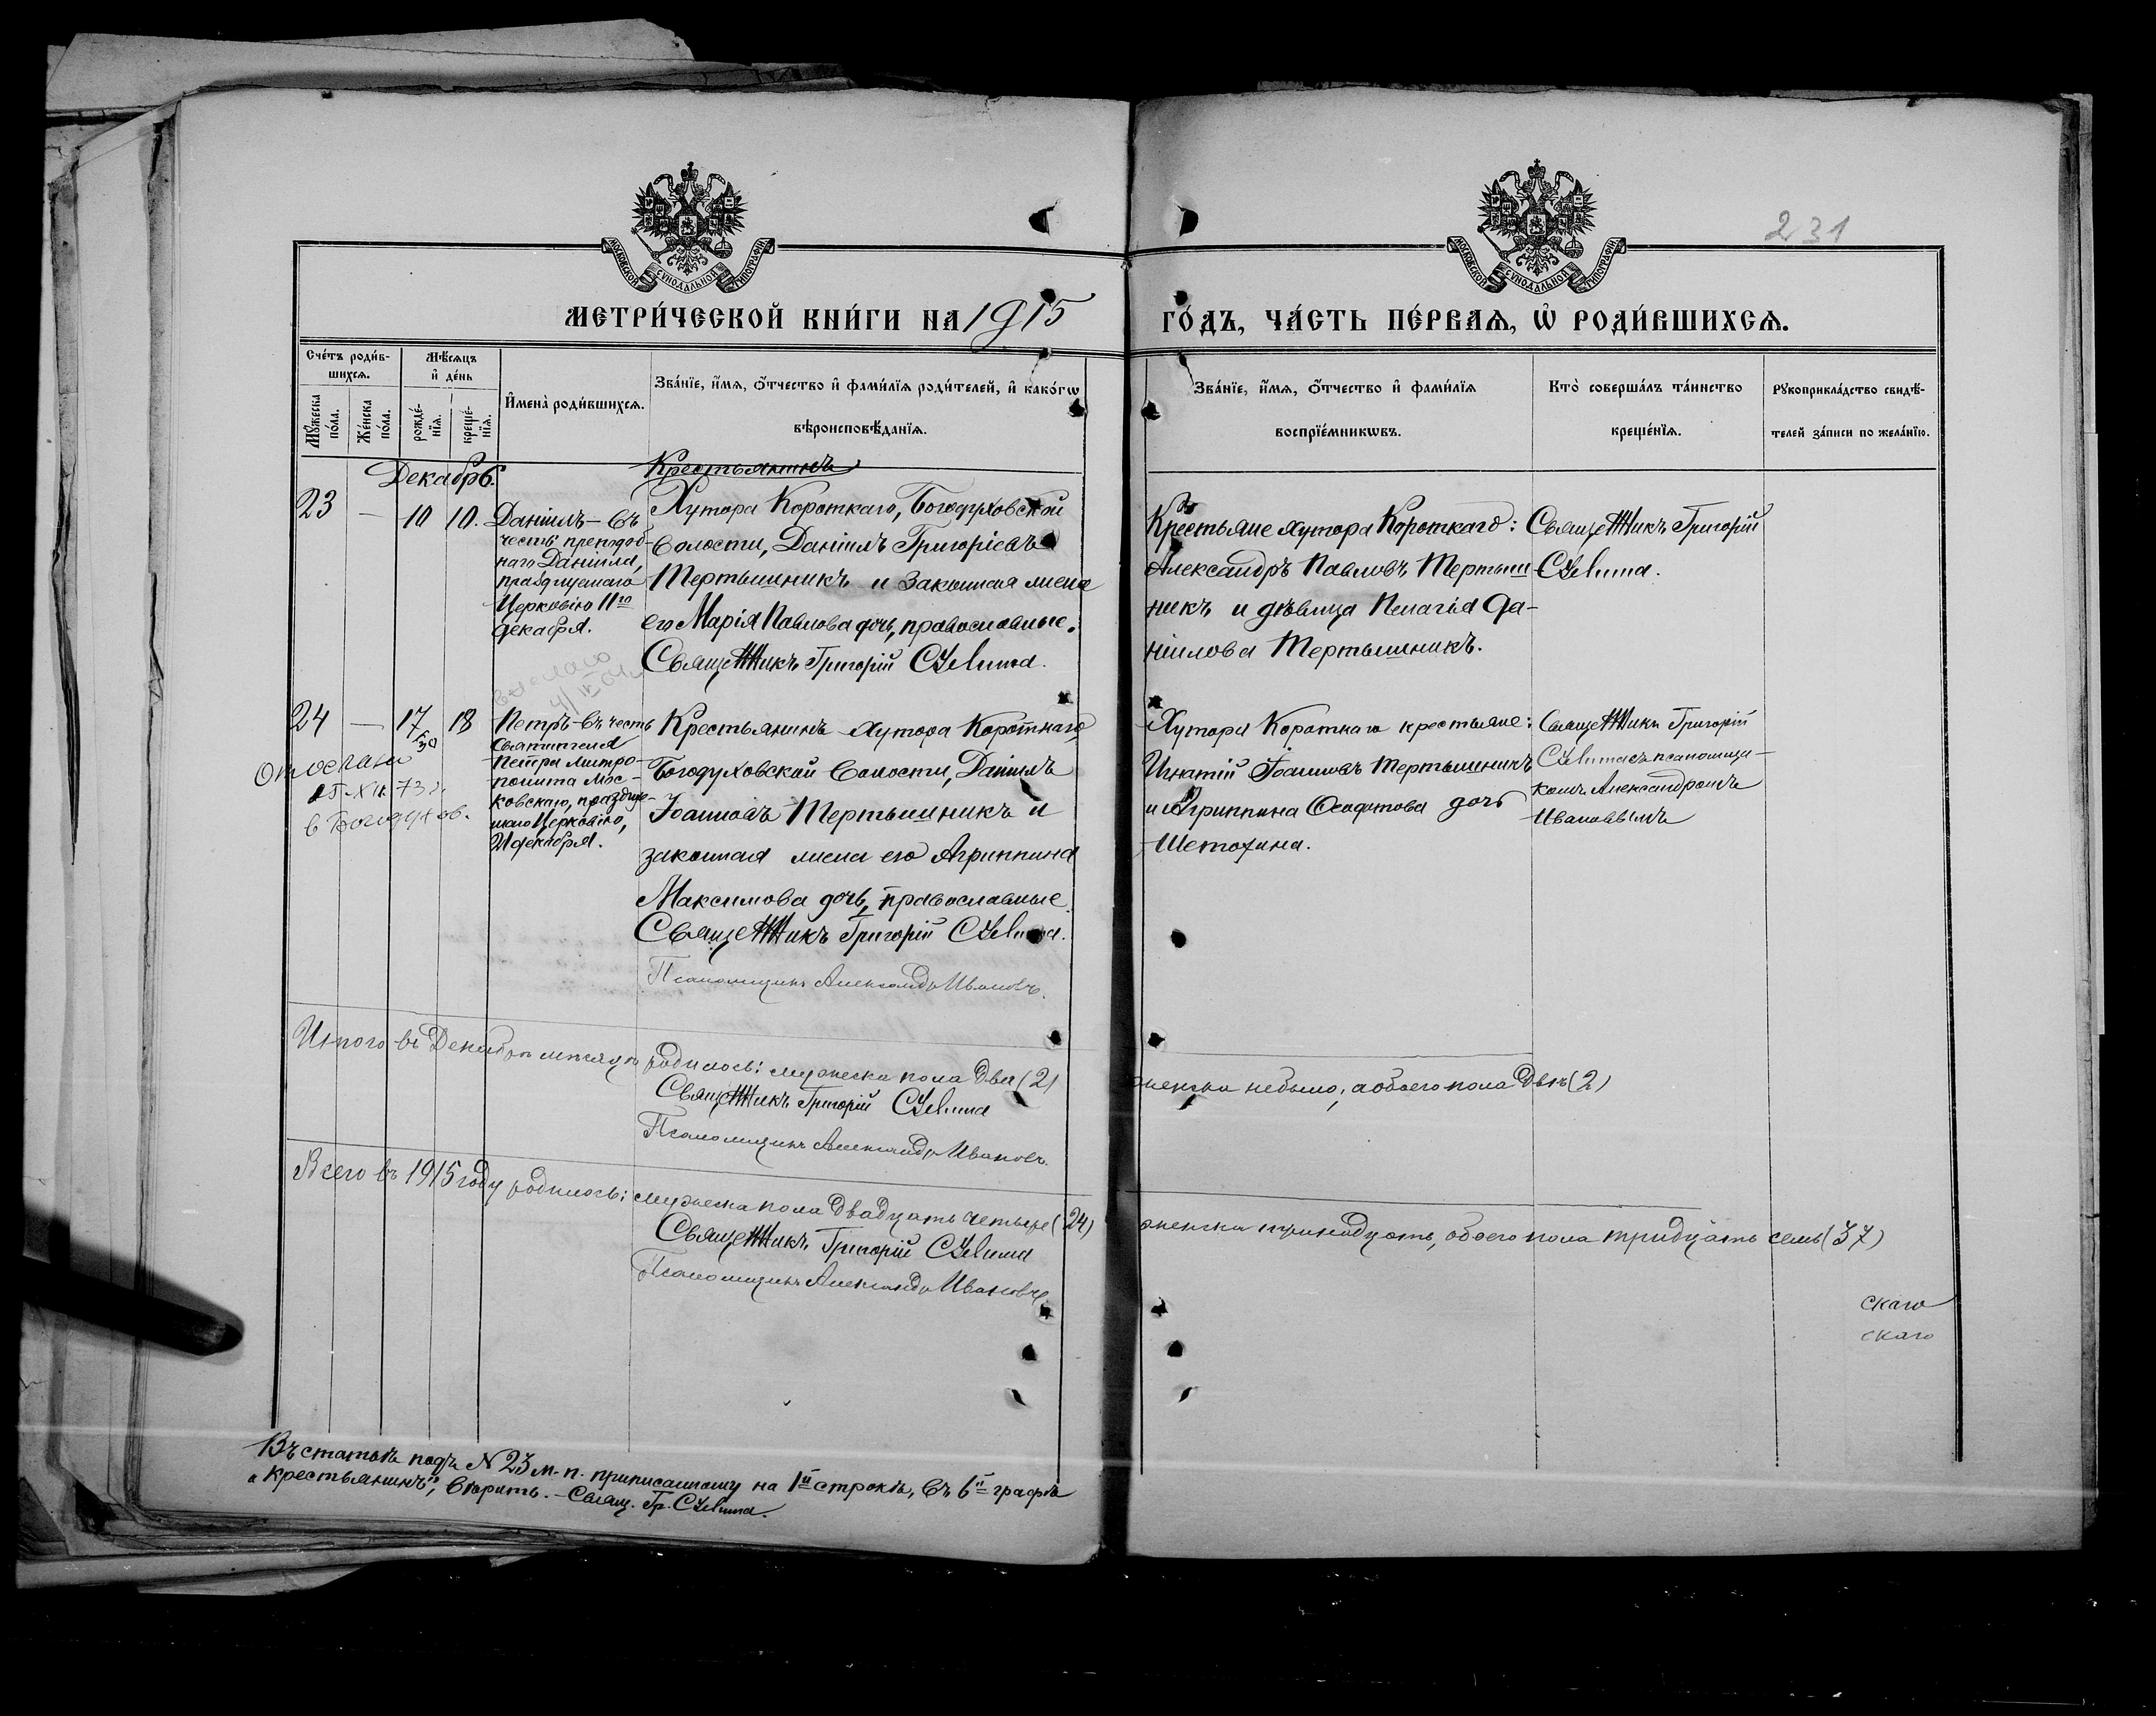 231
МОСКОВСКОЙ СѴНОДАЛЬНОЙ ТИПОГРАФІИ
МОСКОВСКОЙ СѴНОДАЛЬНОЙ ТИПОГРАФІИ
МЕТРИ́ЧЕСКОЙ КНИ́ГИ НА 1915
ГО́ДЪ, ЧА́СТЬ ПЕ́РВАѦ, Ѡ҆ РОДИ́ВШИХСѦ.
Сче́тъ роди́в-
шихсѧ.
Мѣ́сѧцъ
и҆ де́нь
Мꙋ́жеска
по́ла.
Же́нска
по́ла.
рожде́-
нїѧ.
креще́-
нїѧ.
И҆мена̀ роди́вшихсѧ.
Зва́нїе, и҆́мѧ, ѻ҆́тчество и҆ фами́лїѧ роди́телей, и҆ како́гѡ
вѣроисповѣ́данїѧ.
Зва́нїе, и҆́мѧ, ѻ҆́тчество и҆ фами́лїѧ
воспрїе́мникѡвъ.
Кто̀ соверша́лъ та́инство
креще́нїѧ.
Рꙋкоприкла́дство свидѣ́-
телей за́писи по жела́нїю.
Декабрь.
Крестьянинъ
23 — 10 10.
Даніилъ – въ
честь преподоб-
наго Даніила,
празднуемаго
Церковію 11го
декабря.
Хутора Короткаго, Богодуховской
волости, Даніилъ Григоріевъ
Тертышникъ и законная жена
его Марія Павлова дочь, православные.
Священникъ Григорій
Крестьяне хутора Короткаго:
Александръ Павловъ Тертыш
никъ и дѣвица Пелагія Да-
ніилова Тертышникъ.
Священникъ Григорій
24 — 17 18
Петръ – въ честь
Святителя
Петра митро-
полита Мос-
ковскаго, праздну-
емаго Церковію,
21 декабря.
Отослано
в Богодухов.
Крестьянинъ хутора Короткаго,
Богодуховской волости, Даніилъ
Іоанновъ Тертышникъ и
законная жена его Агриппина
Максимова дочь, православные.
Священникъ Григорій
Псаломщикъ Александръ Ивановъ.
Хутора Короткаго крестьяне:
Игнатій Іоанновъ Тертышникъ
и Агриппина Феодотова дочь
Щетохина.
Священникъ Григорій
съ псаломщи-
комъ Александромъ
Ивановымъ
Итого въ Декабрѣ мѣсяцѣ родилось: мужеска пола два (2)
женска небыло, а обоего пола двѣ (2)
Священникъ Григорій
Псаломщикъ Александръ Ивановъ.
Всего въ 1915 году родилось: мужеска пола двадцать четыре (24)
женска тринадцать, обоего пола тридцать семь (37)
Священникъ Григорій
Псаломщикъ Александръ Ивановъ.
скаго
скаго
Въ статьѣ подъ № 23 м. п. приписанному на 1й строкѣ, въ 6й графѣ
„крестьянинъ", вѣрить. – Свящ. Гр.